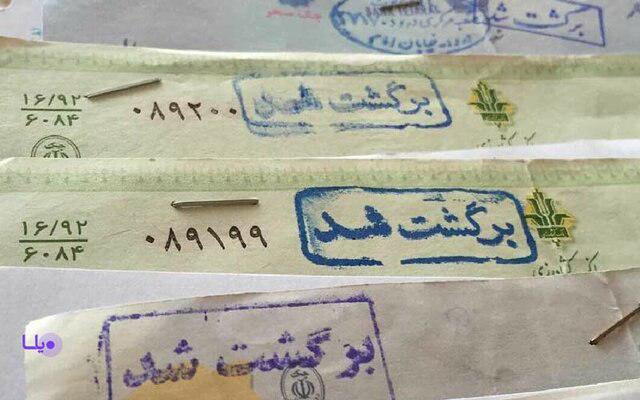 برگشت شد
۱۶/۹۲
۶۰۸۴
۰۸۹۲۰۰
برگشت شد
۱۶/۹۲
۶۰۸۴
۰۸۹۱۹۹
برگشت شد
بانک کشاورزی
یلـا
برگشت شد